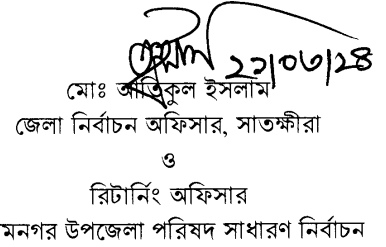 ২১/০৩/২৪
মোঃ আতিকুল ইসলাম
জেলা নির্বাচন অফিসার, সাতক্ষীরা
ও
রিটার্নিং অফিসার
মনগর উপজেলা পরিষদ সাধারণ নির্বাচন